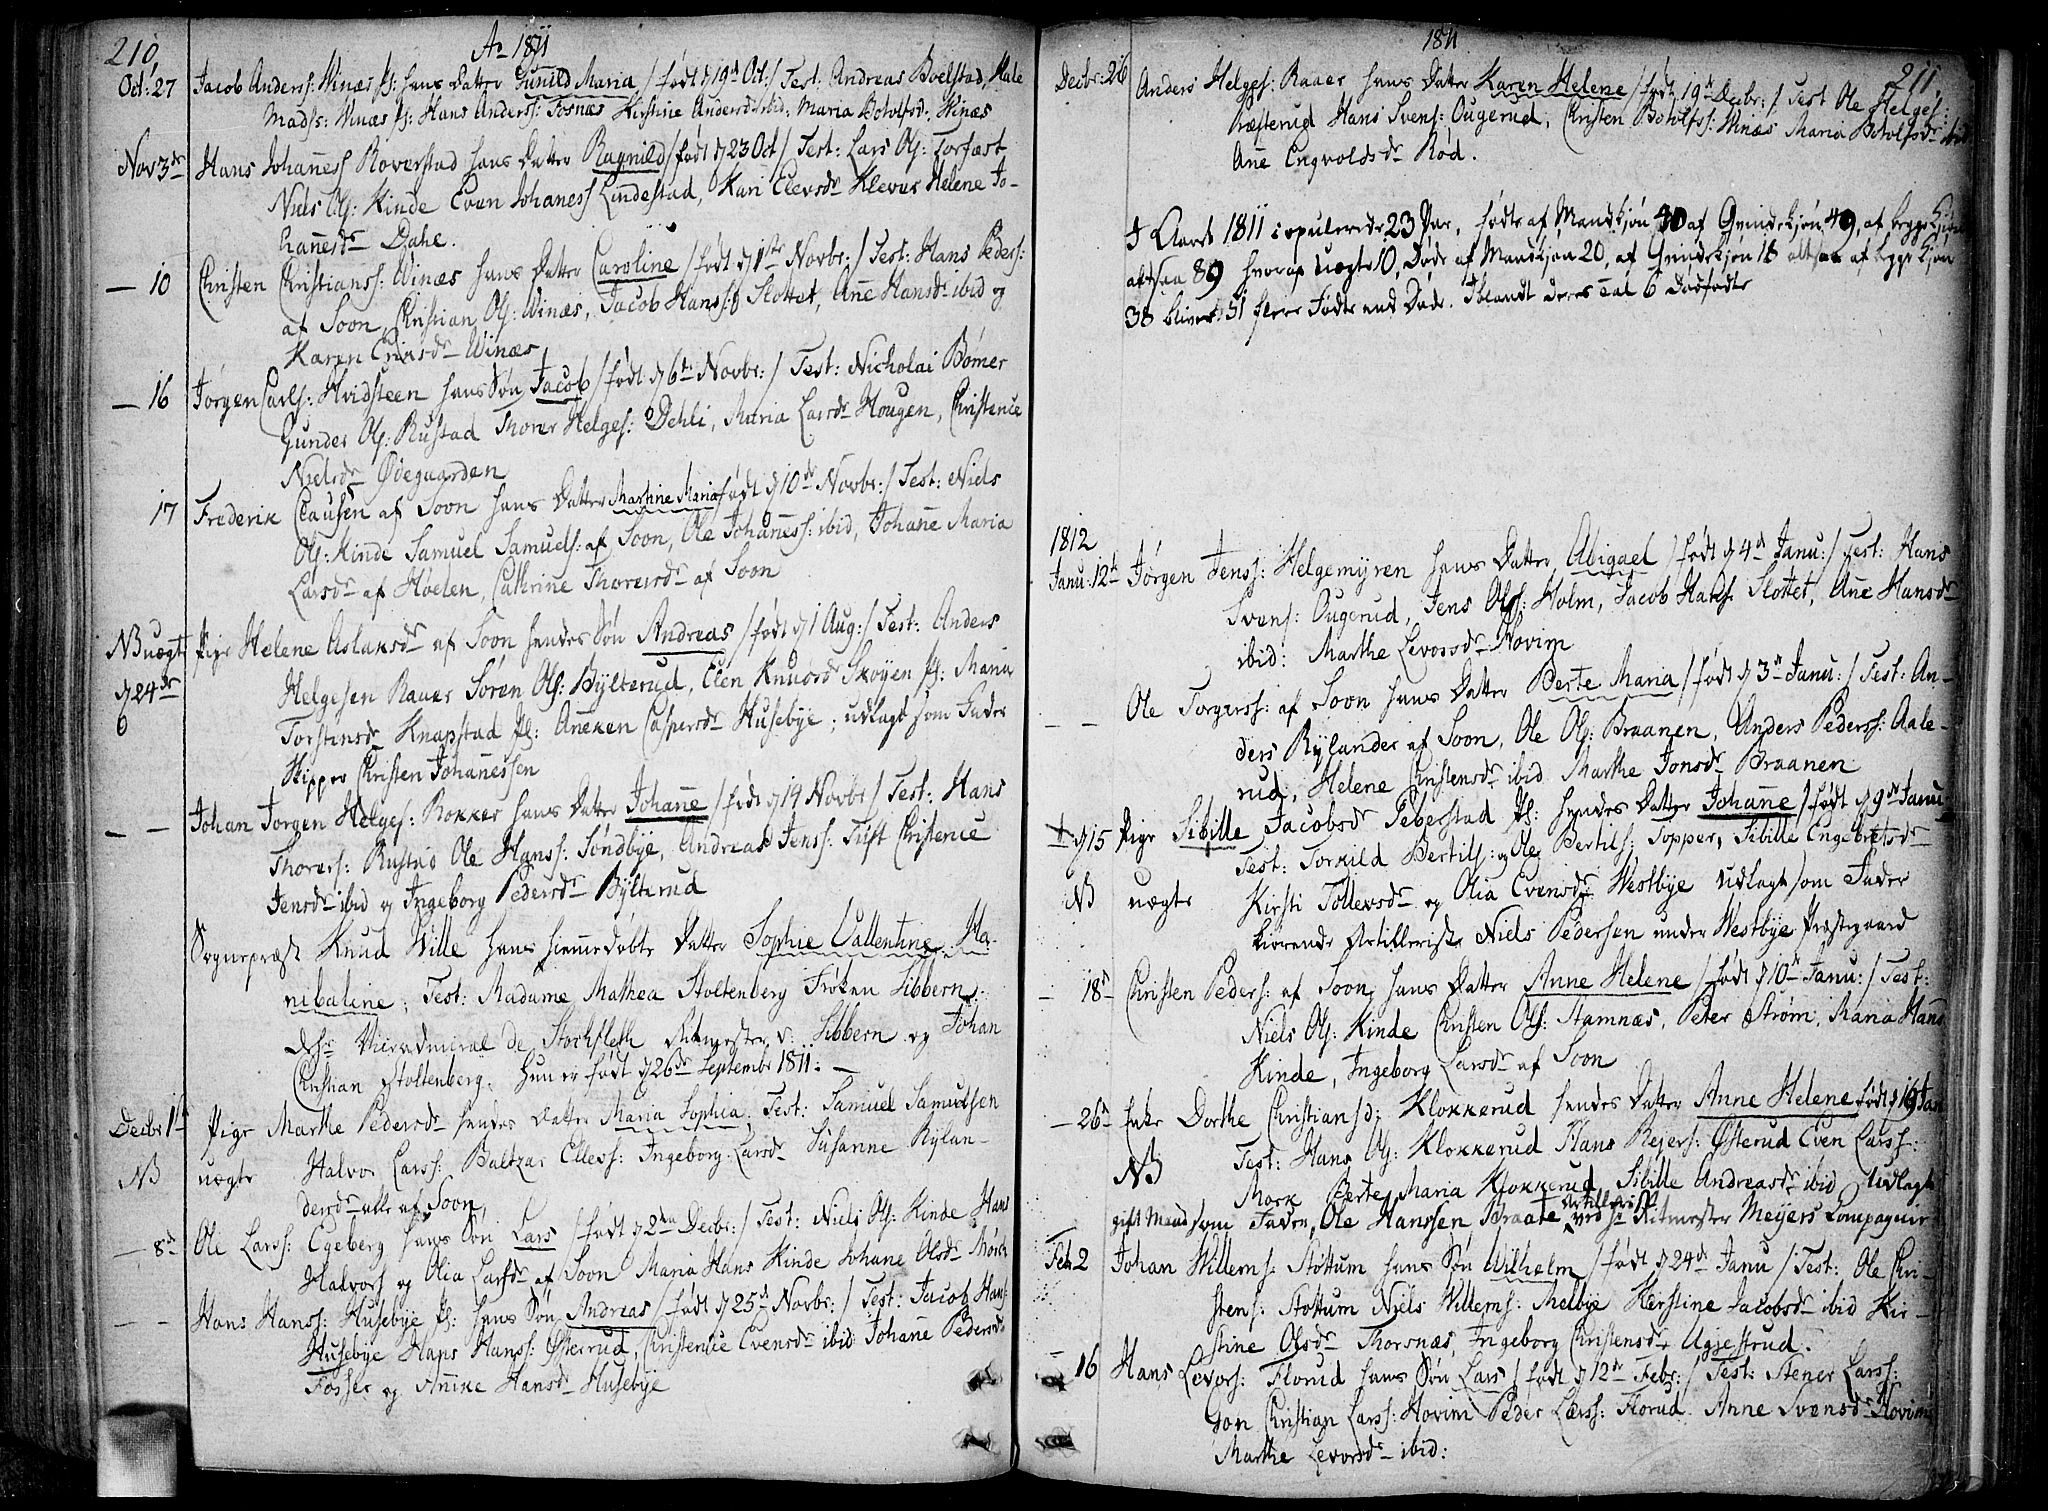 210
Ao 1811
Oct: 27 Jacob Anders: Winæs Pl: hans Datter Gunild Maria / født d 19d Oct: / Test: Andreas Boelstad, Hale
Mads: Winæs Pl: Hans Anders: Fosnæs Kirstine Andersdr ibid: Maria Botolfsd: Winæs
Nov 3de Hans Johaness Roverstad hans Datter Ragnild / født d 23 Oct / Test: Lars Ols: Torfæst
Niels Ols: Kinde Even Johaness Lindestad, Kari Elevsdr Klevar Helene Jo-
hanesdr Dahe.
— 10 Christen Christianss: Winæs hans Datter Caroline / født d 1ste Novbr: / Test: Hans Peders:
af Soon, Christian Ols: Winæs, Jacob Hanss: Slottet, Ane Hansdr ibid og
Karen Eriksdr Winæs
— 16 Jørgen Carls: Hvidsteen hans Søn Jacob / født d 6te Novbr: / Test: Nicholai Bömer
Gunder Ols: Rustad Thorer Helges: Dehli, Maria Larsdr Hougen, Christence
Nielsdr Ødegaarden
17 Frederik Clausen af Soon hans Datter Martine Maria født d 10de Novbr: / Test: Niels
Ols: Kinde Samuel Samuels: af Soon, Ole Johaness: ibid, Johane Maria
Larsdr af Høelen, Cathrine Thoresdr af Soon
NB uægte Pige Helene Aslaksdr af Soon hendes Søn Andreas / født d 1 Aug: / Test: Anders
d 24de Helgesen Rauer Søren Ols: Bÿlterud, Elen Knudsdr Skoÿen Pl: Maria
Torstensdr Knapstad Pl: Aneken Caspersdr Husebÿe; udlagt som Fader
Skipper Christen Johanessen
— — Johan Jørgen Helges: Rokker hans Datter Johane / født d 14 Novbr / Test: Hans
Thorers: Rustad Ole Hanss: Søndbÿe, Andreas Jenss: Tuft Christence
Jensdr ibid og Ingeborg Pedersdr Bÿlterud
Sognepræst Knud Wille hans hiemmedøbte Datter Sophie Vallentine Ha-
nibaline; Test: Madame Mathea Stoltenberg Frøken Sibbern,
Hr Viceadmiral de Stockfleth Ritmester v: Sibbern og Johan
Christian Stoltenberg. Hun er født d 26de Septembr 1811: —
Decbr 1ste Pige Marthe Pedersdr hendes Datter Maria Sophia; Test: Samuel Samuelsen
NB uægte Halvor Larss: Baltzar Elless: Ingeborg Larsdr Susanne Rÿlan-
dersdr alle af Soon,
— 8de Ole Larss: Egeberg hans Søn Lars / født d 2den Decbr: / Test: Niels Ols: Kinde Hans
Halvors og Olia Larsdr af Soon Maria Hans Kinde Johane Olsdr Mörk
— — Hans Hanss: Husebÿe Pl: hans Søn Andreas / født d 25de Novbr: / Test: Jacob Hans:
Husebÿe Hans Hanss: Østerud, Christence Evensdr ibid: Johane Pedersdr
Fosser og Anike Hansdr Husebÿe
1811
211.
Decbr: 26 Anders Helges: Raaer hans Datter Karen Helene / født 19de Decbr: / Test Ole Helges:
Præsterud Hans Svens: Ougerud, Christen Botolfs: Winæs Maria Botolfsdr ibid
Ane Engvoldsdr Rød.
I Aaret 1811 copulerede 23 Par, fødte af Mandkjøn 40 af Qvindekjøn 49, af begge Kjøn
altsaa 89 hvoraf uægte 10, Døde af Mandkjøn 20, af Qvindekjøn 18 altsaa af begge Kjøn
38 bliver 51 flere Fødte end Døde. Iblandt deres Tal 6 Dødfødte
1812
Janu: 12te Jørgen Jenss: Helgemÿren hans Datter Abigael / født d 4de Janu: / Test: Hans
Svens: Ougerud, Jens Ols: Holm, Jacob Hans: Slottet, Ane Hansdr
ibid: Marthe Levorsdr Hovim
— — Ole Torgerss: af Soon hans Datter Berte Maria / født d 3de Janu: / Test: An-
ders Rÿlander af Soon, Ole Ols: Braanen, Anders Pederss: Aale-
rud, Helene Christensdr ibid Marthe Jonsdr Braanen
d 15 Pige Sibille Jacobsdr Teberstad Pl: hendes Datter Johane / født d 9de Janu:
Test: Torkild Bertils: og Ole Bertils: Topper, Sibille Engebretsdr
NB uægte Kirsti Tollevsdr og Olia Evensdr Westbÿe udlagt som Fader
Artillerist Niels Pedersen under Westbÿe Præstegaard
— 18de Christen Peders: af Soon, hans Datter Anne Helene / født d 10de Janu: / Test:
Niels Ols: Kinde Christen Ols: Stamnæs, Peter Strøm, Maria Hans
Kinde, Ingeborg Larsdr af Soon
— 26de Enke Dorthe Christiansd: Klokkerud hendes Datter Anne Helene født d 19 Jan
NB Test: Hans Ols: Klokkerud Hans Rejers: Østerud Even Larss:
Mork Berte Maria Klokkerud, Sibille Andreasdr ibid Udlagt
gift Mand som Fader, Ole Hanssen Braate Artillerist ved Hr Ritmester Meÿers Compagnie
Feb: 2 Johan Willems: Støttum hans Søn Wilhelm / født d 24de Janu / Test: Ole Chri-
stens: Støttum Niels Willems: Melbÿe Kirstine Jacobsdr ibid Kir-
stine Olsdr Thorsnæs, Ingeborg Christensdr Aggestrud.
— 16 Hans Levors: Florud hans Søn Lars / født d 12te Febr: / Test: Stener Larss:
Gon Christian Larss: Hovim Peder Larss: Florud Anne Svensdr Hovim
Marthe Levorsdr ibid: